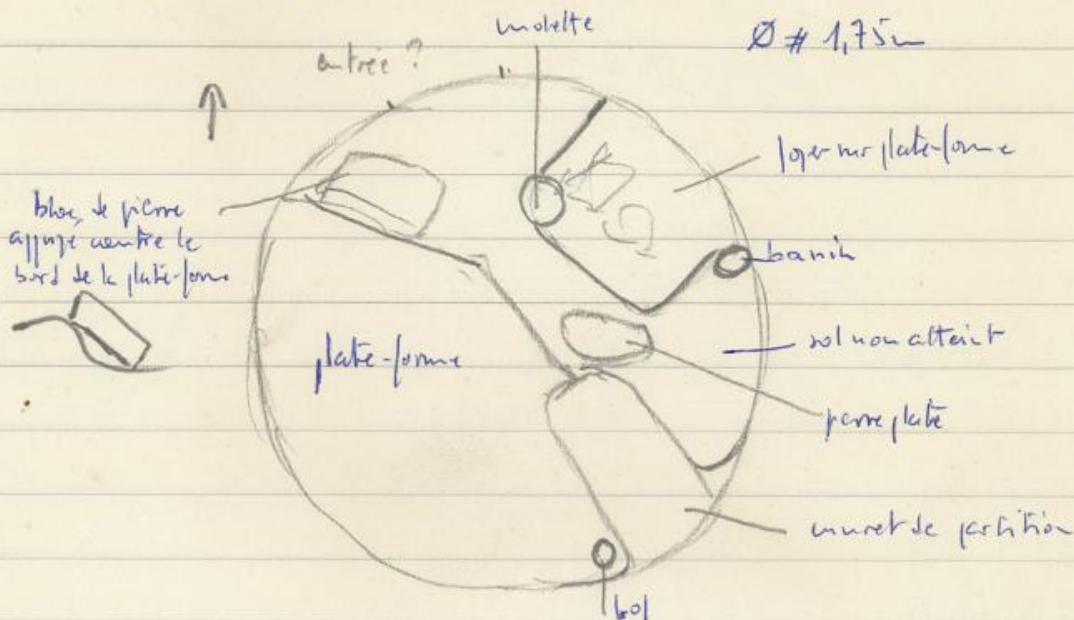 molette
Ø # 1,75m
entrée ?
foyer sur plate-forme
bloc de pierre
appuyé contre le
bord de la plate-forme
banih
plate-forme
sol non atteint
pierre plate
muret de partition
bol